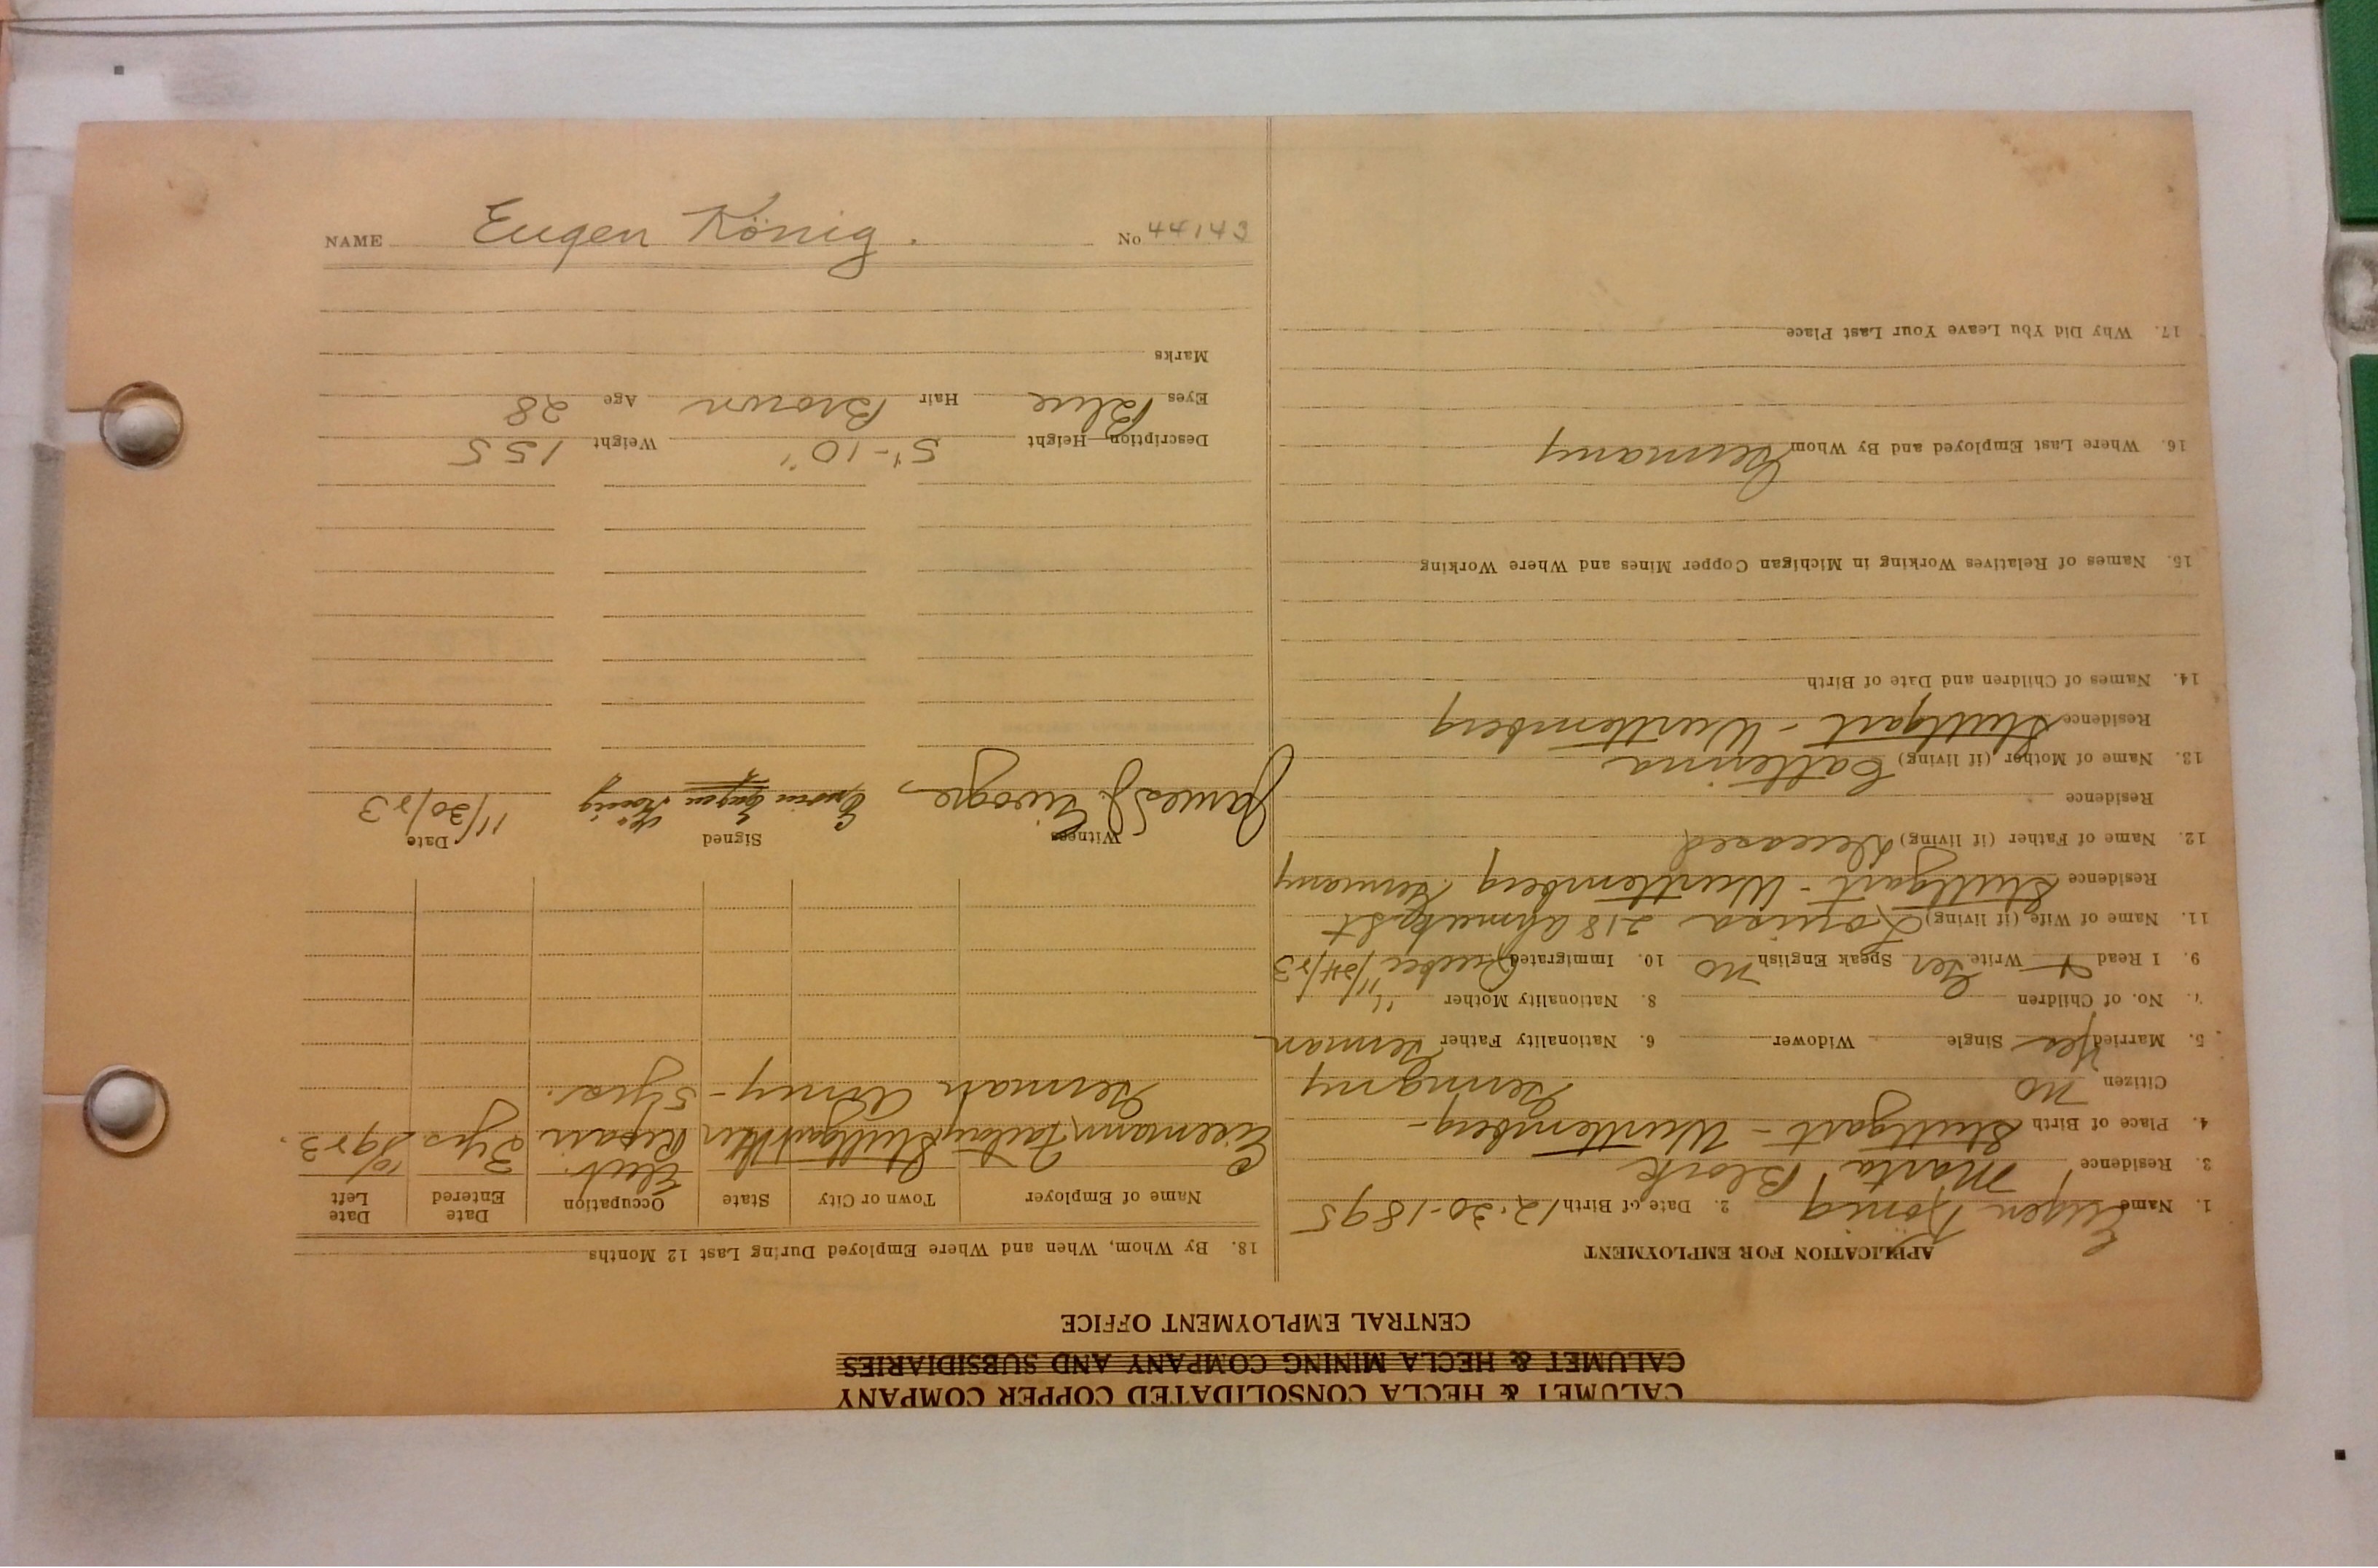 NAME Eugen König. No 44143
CALUMET & HECLA CONSOLIDATED COPPER COMPANY
CALUMET & HECLA MINING COMPANY AND SUBSIDIARIES
CENTRAL EMPLOYMENT OFFICE
APPLICATION FOR EMPLOYMENT
1. Name Eugen König 2. Date of Birth 12-30-1895
3. Residence Marta Block
4. Place of Birth Stuttgart - Wurttemberg -
Citizen no Germany
5. Married Yes Single Widower 6. Nationality Father German
7. No. of Children 8. Nationality Mother "
9. I Read + Write Ger Speak English no 10. Immigrated Quebec 11/24/23
11. Name of Wife (if living) Louisa 218 Ahmeek St
Residence Stuttgart - Wurttemberg Germany
12. Name of Father (if living) Deceased
Residence
13. Name of Mother (if living) Catterina
Residence Stuttgart - Wurttemberg
14. Names of Children and Date of Birth
15. Names of Relatives Working in Michigan Copper Mines and Where Working
16. Where Last Employed and By Whom Germany
17. Why Did You Leave Your Last Place
18. By Whom, When and Where Employed During Last 12 Months
Name of Employer Town or City State Occupation Date Entered Date Left
Eisemann Factory Stuttgart Elect. Repair 3 yrs 10/1923.
German Army - 5 yrs.
Witness Signed Date
James J. Erwin Eugen König 11/30/23
Description—Height 5'-10" Weight 155
Eyes Blue Hair Brown Age 28
Marks